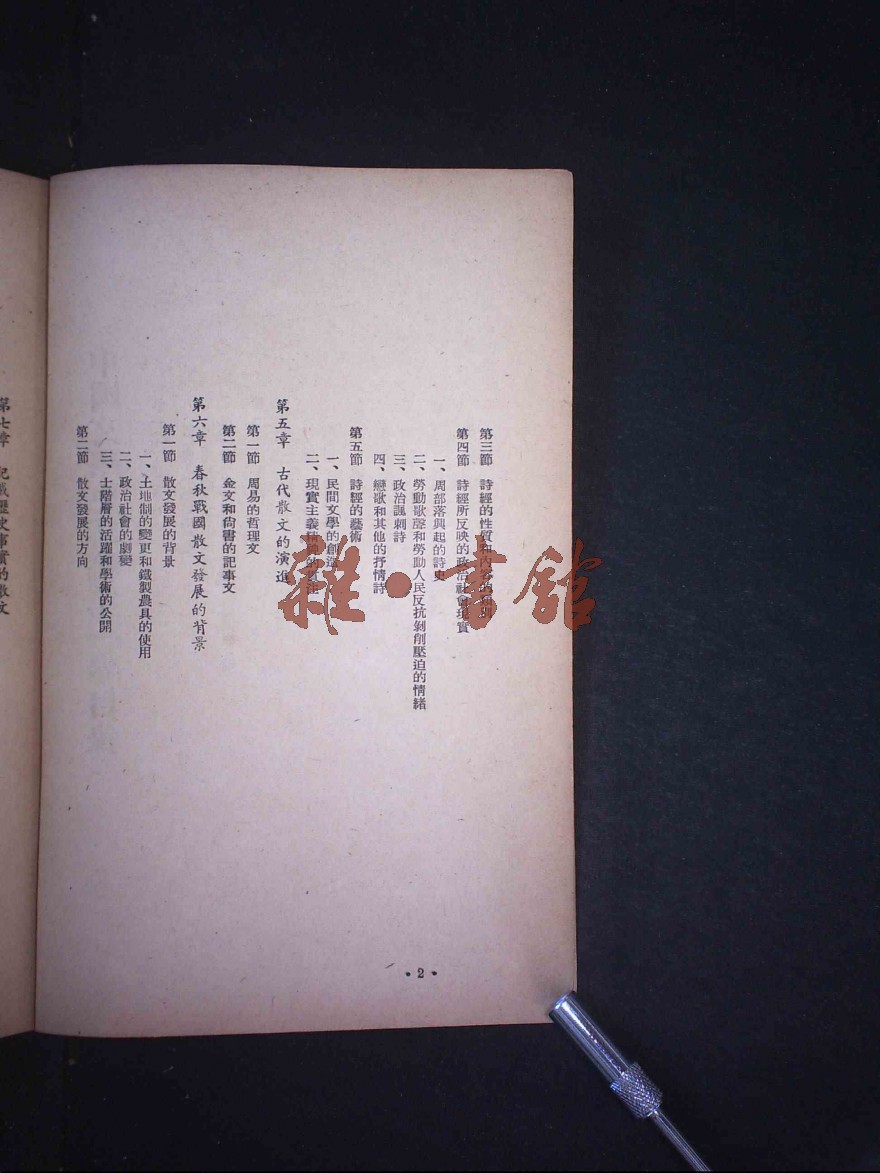 第三節 詩經的性質和內容的
第四節 詩經所反映的政治社會現實
一、周部落興起的詩史
二、勞動歌聲和勞動人民反抗剝削壓迫的情緒
三、政治諷刺詩
四、戀歌和其他的抒情詩
第五節 詩經的藝術
一、民間文學的創造
二、現實主義精神的
第五章 古代散文的演進
第一節 周易的哲理文
第二節 金文和尙書的記事文
第六章 春秋戰國散文發展的背景
第一節 散文發展的背景
一、土地制的變更和鐵製農具的使用
二、政治社會的劇變
三、士階層的活躍和學術的公開
第二節 散文發展的方向
第七章 記載歷史事實的散文
•2•
雜·書館